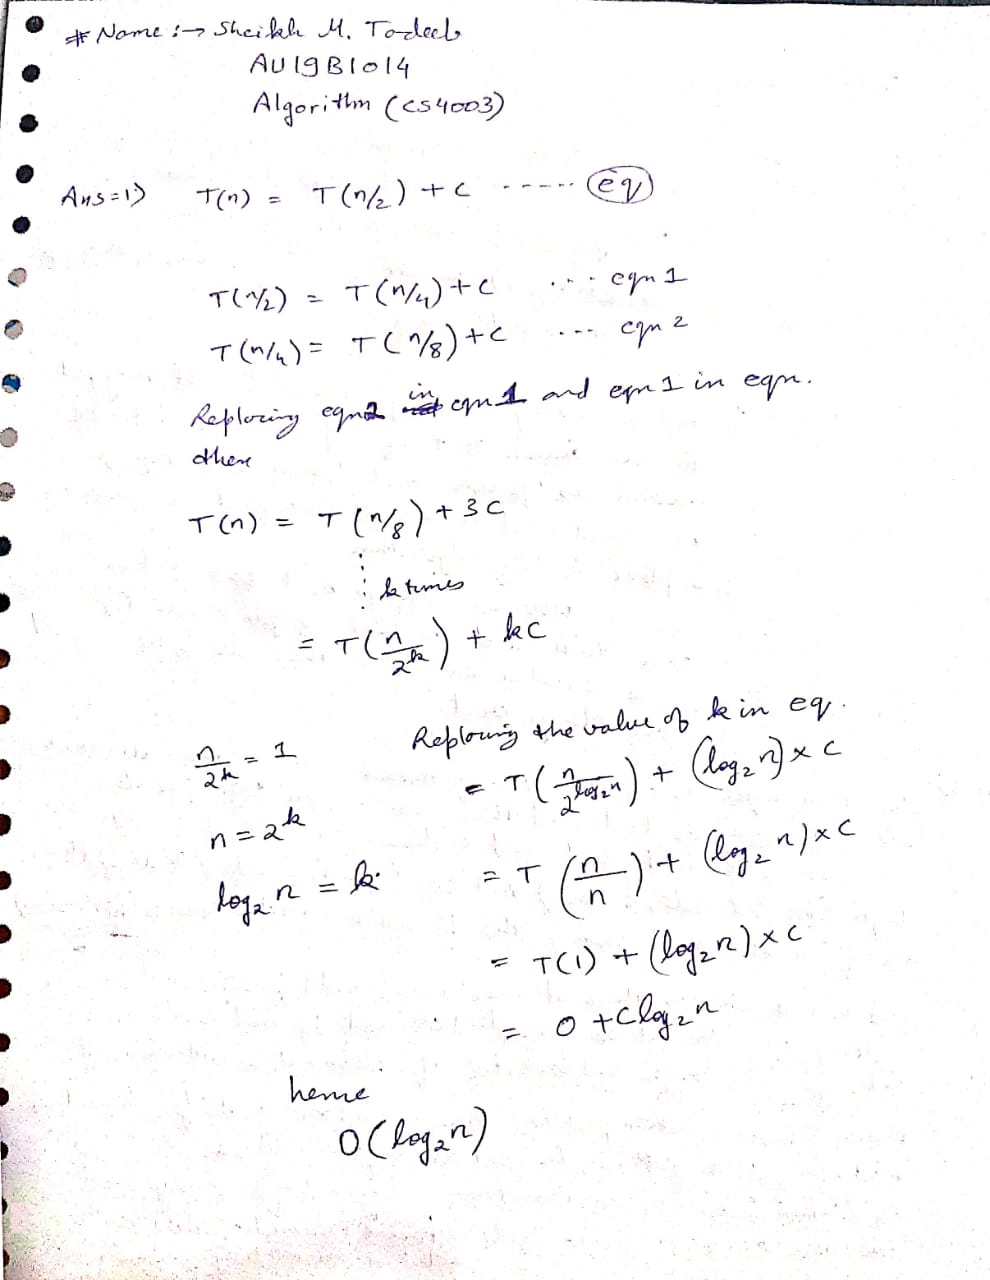 # Name :→ Sheikh M. Tadeeb
AU19B1014
Algorithm (CS4003)
Ans=1) T(n) = T(n/2) + c ----- eq
T(n/2) = T(n/4) + c ... eqn 1
T(n/4) = T(n/8) + c ... eqn 2
Replacing eqn2 in eqn 1 and eqn 1 in eqn.
then
T(n) = T(n/8) + 3c
⋮ k times
= T(n/2^k) + kc
n/2^k = 1
n = 2^k
log₂ n = k
Replacing the value of k in eq.
= T(n/2^log₂n) + (log₂ n) × c
= T(n/n) + (log₂ n) × c
= T(1) + (log₂ n) × c
= 0 + c log₂ n
hence
O(log₂ n)